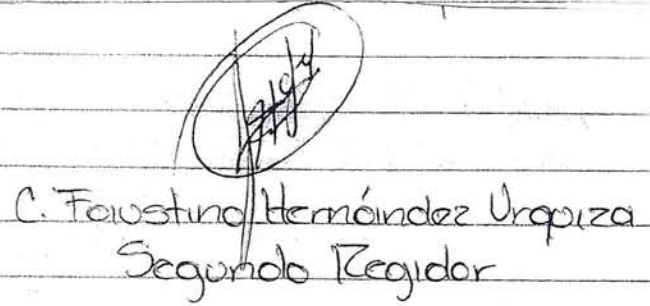 C. Faustino Hernández Urquiza
Segundo Regidor